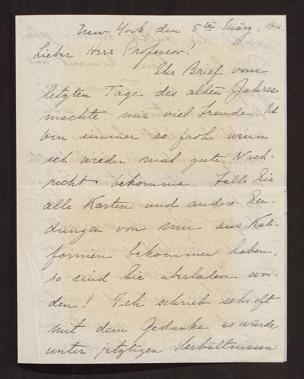 New York, den 5ten März, 1916.
Lieber Herr Professor!
Ihr Brief vom
letzten Tage des alten Jahres
machte mir viel Freude. Ich
bin immer so froh wenn
ich wieder mal gute Nach-
richt bekomme. Falls Sie
alle Karten und andere Sen-
dungen von mir aus Kali-
fornien bekommen haben,
so sind Sie überladen wor-
den! Ich schrieb sehr oft
mit dem Gedanke es würde
unter jetztigen Verhältnissen